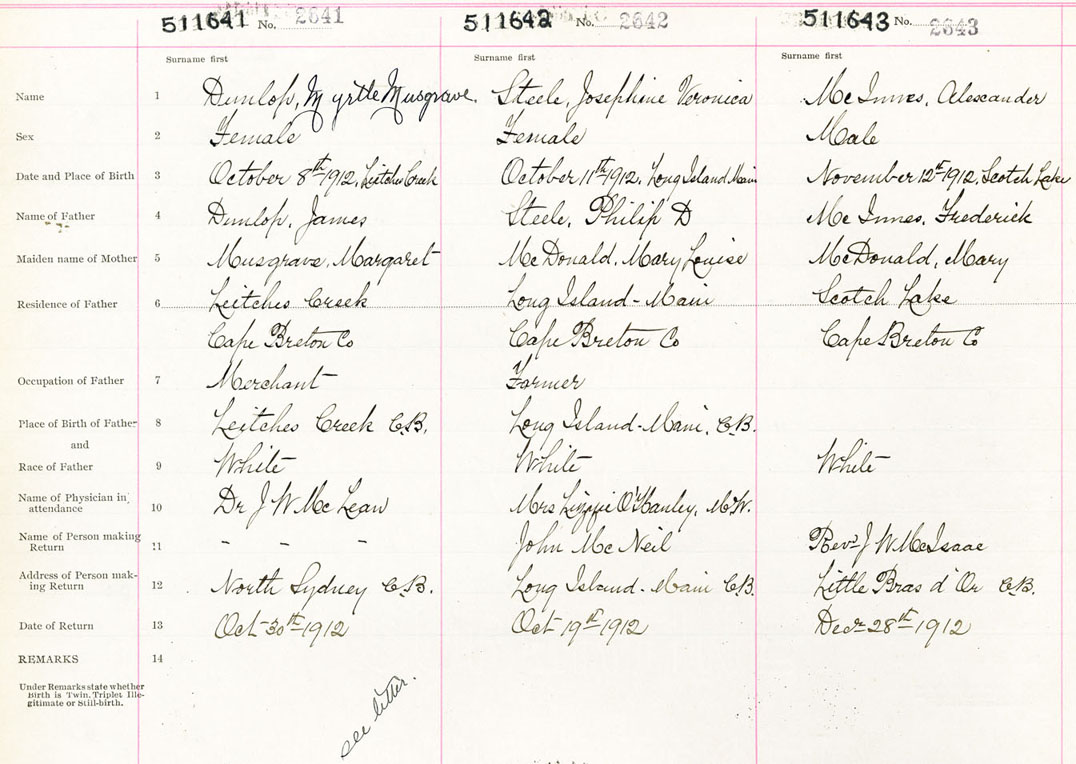 511641 No. 2641 511642 No. 2642 511643 No. 2643
Surname first Surname first Surname first
Name 1 Dunlop, Myrtle Musgrave. Steele, Josephine Veronica McInnes, Alexander
Sex 2 Female Female Male
Date and Place of Birth 3 October 8th 1912, Leitches Creek October 11th 1912, Long Island Main November 12th 1912, Scotch Lake
Name of Father 4 Dunlop, James Steele, Philip D McInnes, Frederick
Maiden name of Mother 5 Musgrave, Margaret McDonald, Mary Louise McDonald, Mary
Residence of Father 6 Leitches Creek Long Island - Main Scotch Lake
Cape Breton Co Cape Breton Co Cape Breton Co
Occupation of Father 7 Merchant Farmer
Place of Birth of Father 8 Leitches Creek C.B. Long Island - Main, C.B.
and
Race of Father 9 White White White
Name of Physician in attendance 10 Dr J W McLean Mrs Lizzie O'Hanley, M.W.
Name of Person making Return 11 - - - John McNeil Revd J W McIsaac
Address of Person mak-
ing Return 12 North Sydney C.B. Long Island - Main C.B. Little Bras d'Or C.B.
Date of Return 13 Oct 30th 1912 Oct 19th 1912 Decr 28th 1912
REMARKS 14
Under Remarks state whether
Birth is Twin, Triplet Ille-
gitimate or Still-birth.
see letter.